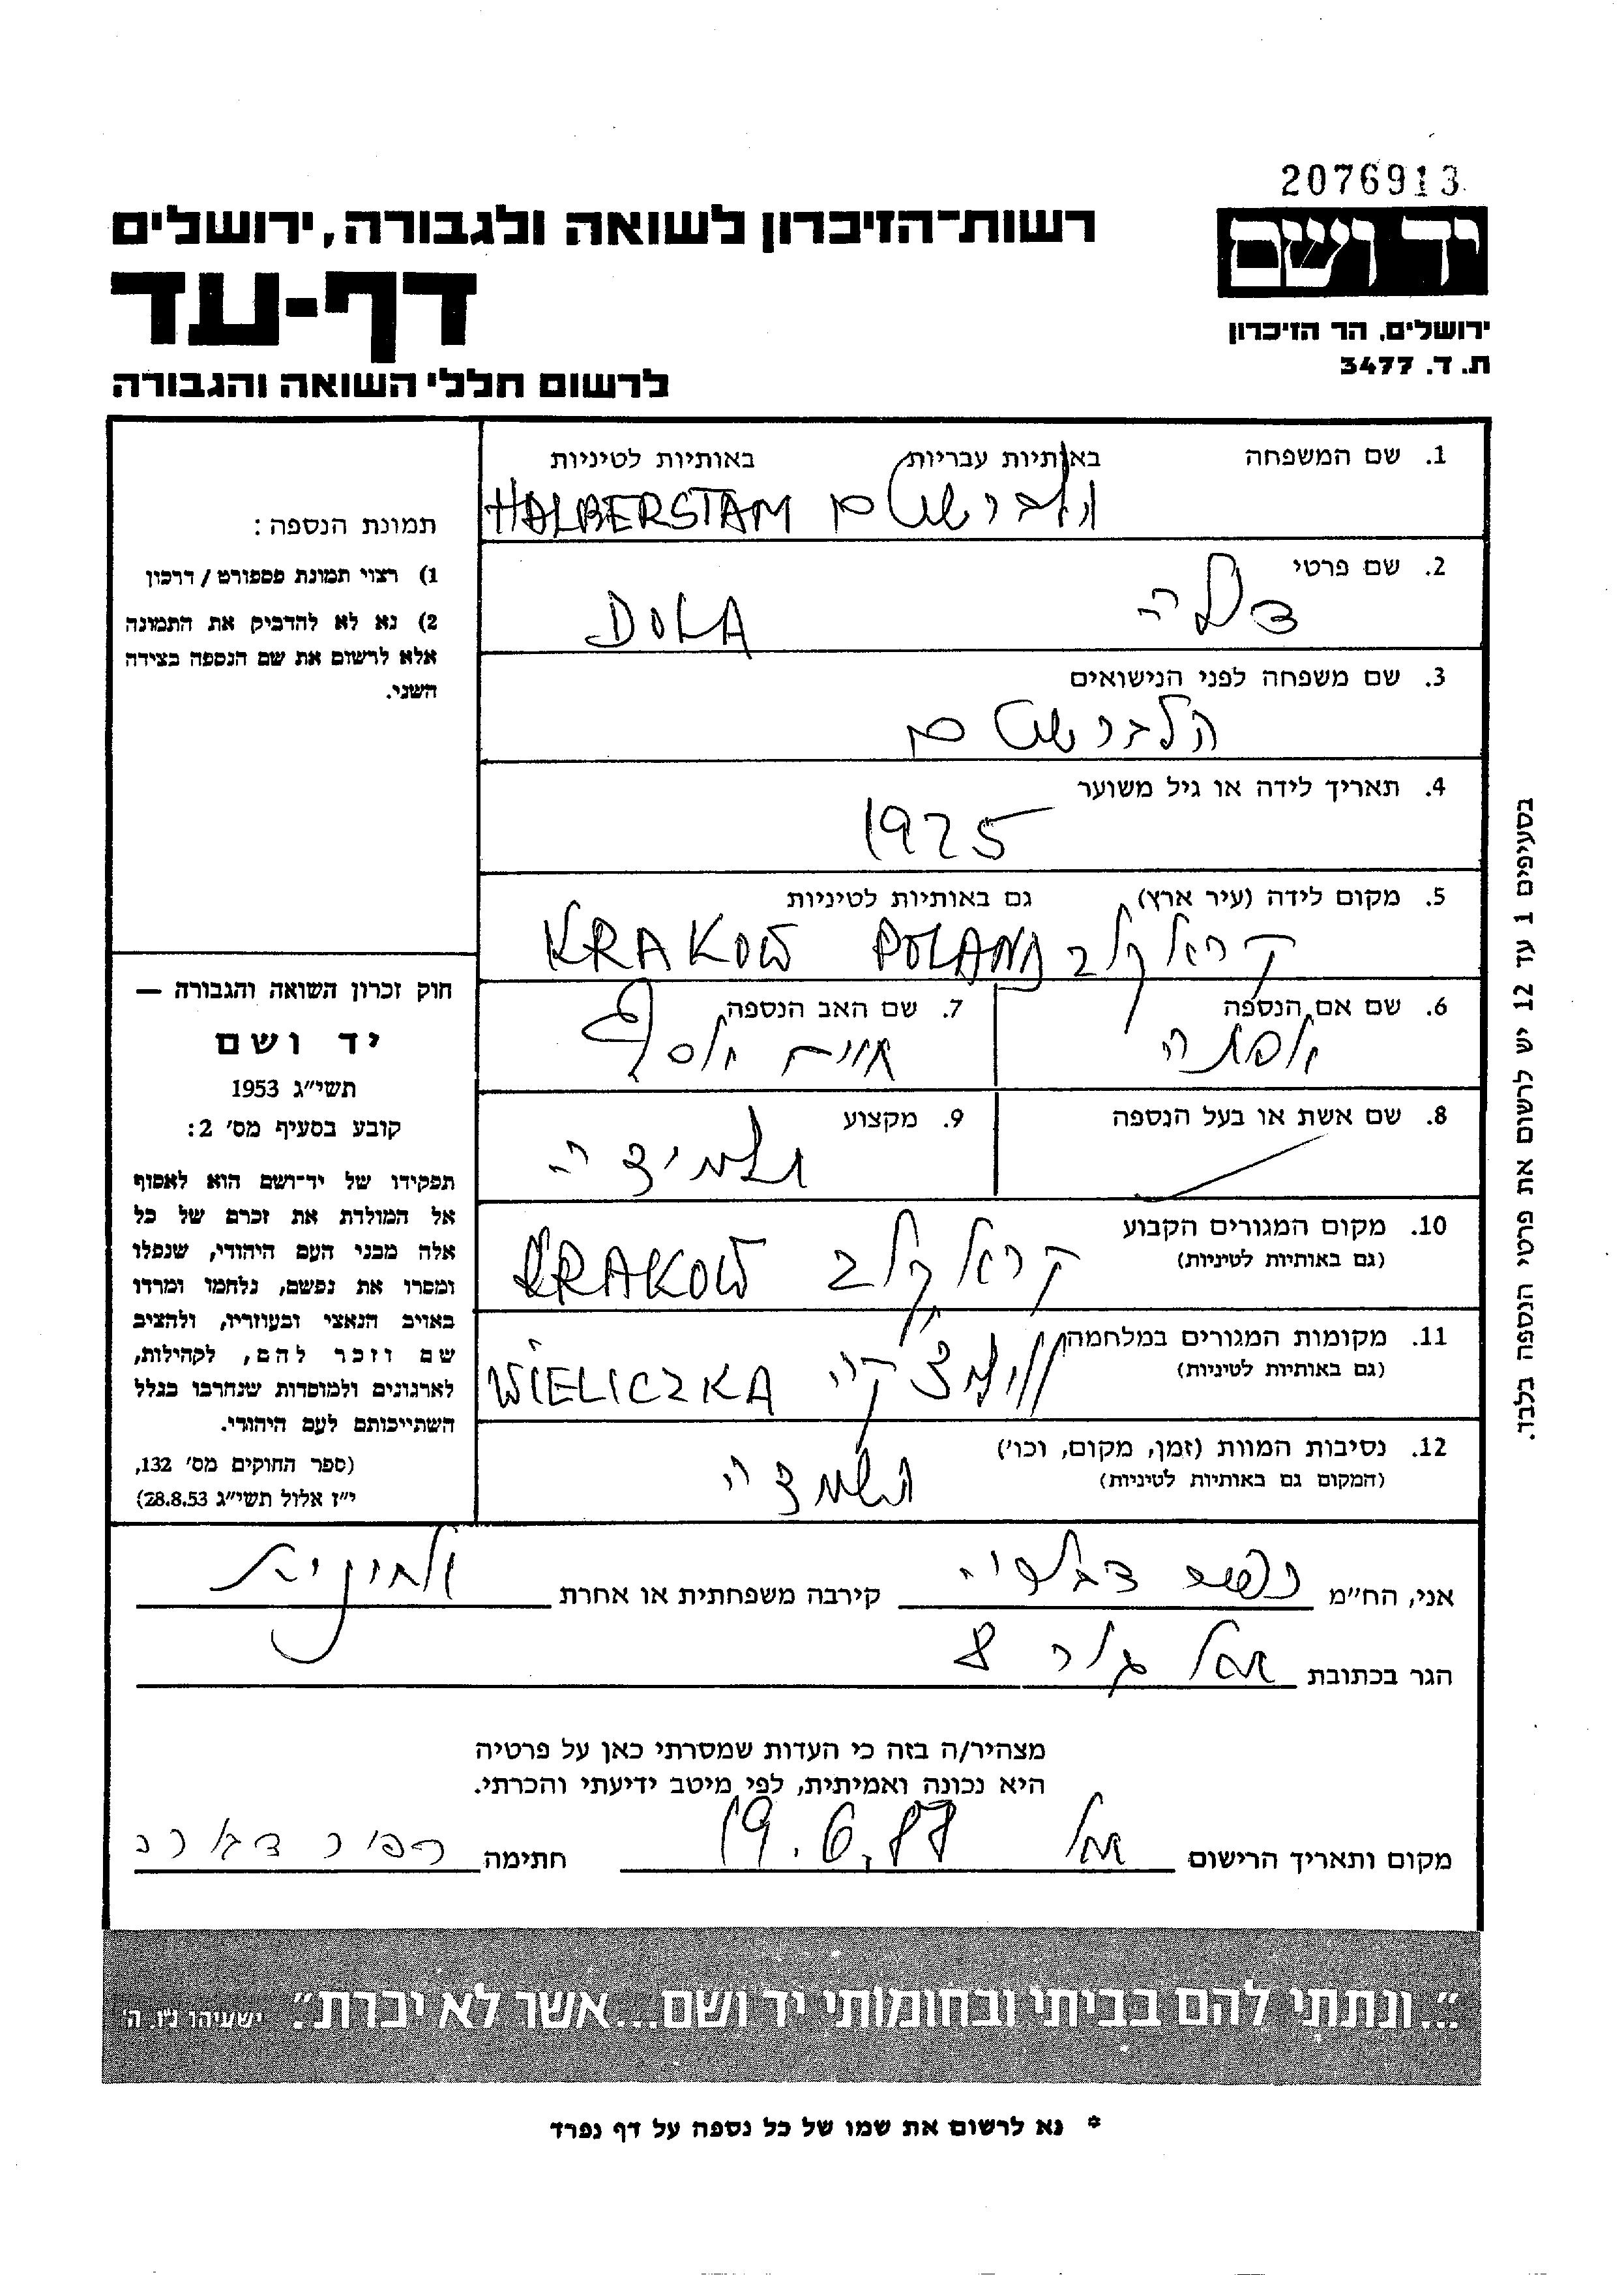 2076913
יד ושם
ירושלים, הר הזיכרון
ת. ד. 3477
רשות־הזיכרון לשואה ולגבורה, ירושלים
דף-עד
לרשום חללי השואה והגבורה
1. שם המשפחה באותיות עבריות באותיות לטיניות
הלברשטם HALBERSTAM
2. שם פרטי
DOLA
3. שם משפחה לפני הנישואים
הלברשטם
4. תאריך לידה או גיל משוער
1925
5. מקום לידה (עיר ארץ) גם באותיות לטיניות
קראקוב KRAKOW POLAND
6. שם אם הנספה
7. שם האב הנספה
חיים יוסף
8. שם אשת או בעל הנספה
9. מקצוע
תלמידה
10. מקום המגורים הקבוע
(גם באותיות לטיניות)
קראקוב KRAKOW
11. מקומות המגורים במלחמה
(גם באותיות לטיניות)
WIELICZKA
12. נסיבות המוות (זמן, מקום, וכו')
(המקום גם באותיות לטיניות)
השמדה
תמונת הנספה:
1) רצוי תמונת פספורט / דרכון
2) נא לא להדביק את התמונה
אלא לרשום את שם הנספה בצידה
השני.
חוק זכרון השואה והגבורה —
יד ושם
תשי״ג 1953
קובע בסעיף מס׳ 2:
תפקידו של יד־ושם הוא לאסוף
אל המולדת את זכרם של כל
אלה מבני העם היהודי, שנפלו
ומסרו את נפשם, נלחמו ומרדו
באויב הנאצי ובעוזריו, ולהציב
שם וזכר להם, לקהילות,
לארגונים ולמוסדות שנחרבו בגלל
השתייכותם לעם היהודי.
(ספר החוקים מס׳ 132,
י״ז אלול תשי״ג 28.8.53)
בסעיפים 1 עד 12 יש לרשום את פרטי הנספה בלבד.
אני, הח״מ קירבה משפחתית או אחרת
הגר בכתובת 8
מצהיר/ה בזה כי העדות שמסרתי כאן על פרטיה
היא נכונה ואמיתית, לפי מיטב ידיעתי והכרתי.
מקום ותאריך הרישום 19.6.88 חתימה
״...ונתתי להם בביתי ובחומותי יד ושם...אשר לא יכרת״. ישעיהו נ״ו, ה׳
* נא לרשום את שמו של כל נספה על דף נפרד